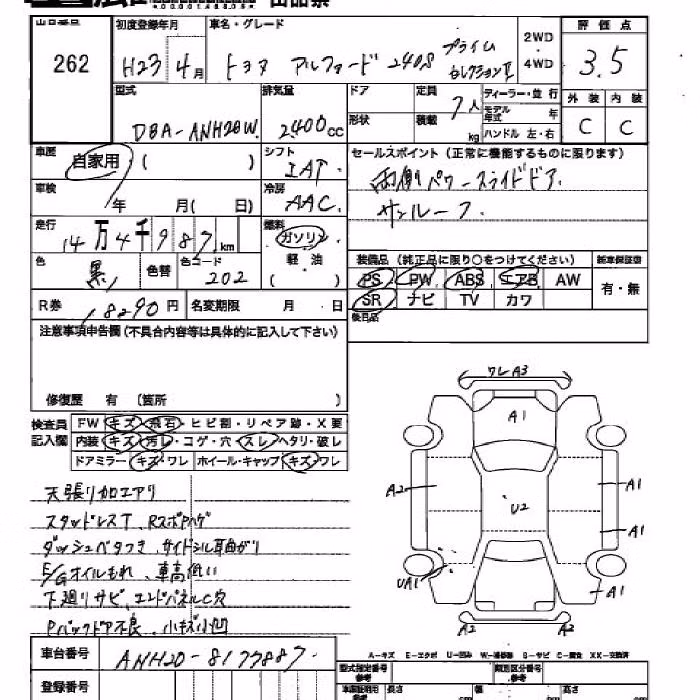 出品番号 初度登録年月 車名・グレード 2WD・4WD 評価点
262 H23 4月 トヨタ アルファード 240S プライムセレクションⅡ 3.5
型式 排気量 ドア 定員 ディーラー・並行 外装 内装
DBA-ANH20W. 2400cc 形状 7人 積載 kg モデル年式 年 ハンドル 左・右 C C
車歴 自家用 ( ) シフト IAT. セールスポイント (正常に機能するものに限ります)
両側パワースライドドア.
車検 年 月( 日) 冷房 AAC. サンルーフ.
走行 14万4千987km 燃料 ガソリン
軽油
( )
色 黒 色替 色コード 202
装備品 (純正品に限り○をつけてください) 新車保証書
PS PW ABS エアB AW 有・無
SR ナビ TV カワ
R券 18290円 名変期限 月 日 後日品
注意事項申告欄 (不具合内容等は具体的に記入して下さい)
修復歴 有 (箇所 )
検査員記入欄 FW キズ・飛石・ヒビ割・リペア跡・X要
内装 キズ・汚レ・コゲ・穴・スレ・ヘタリ・破レ
ドアミラー キズ・ワレ ホイール・キャップ キズ・ワレ
天張リ加工アリ
スタッドレスT、Rスポアハゲ
ダッシュベタつき、サイドシル耳曲がり
E/Gオイルもれ、車高低い
下廻リサビ、エンドパネルC穴
Pバックドア不良、小キズ小凹
ワレA3
A1
A2
A1
U2
A1
UA1
A1
A2 A2
A-キズ E-エクボ U-凹み W-補修跡 S-サビ C-腐食 XX-交換済
車台番号 ANH20-8177887.
登録番号
型式指定番号 参考 類別区分番号 参考
長さ cm 幅 cm 高さ cm